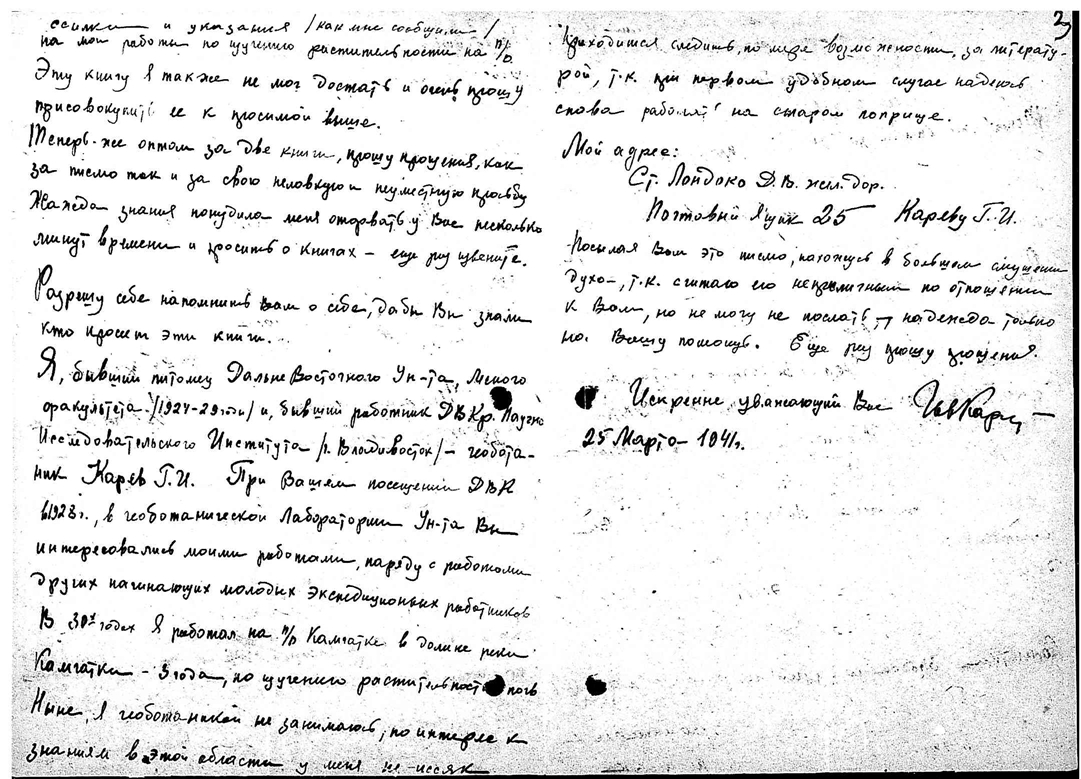 ссилки и указания /как мне сообщили/
на мои работы по изучению растительности на п/о.
Эту книгу я также не мог достать и очень прошу
присовокупить ее к просимой выше.
Теперь-же оптом за две книги, прошу прощения, как
за писмо так и за свою неловкую и неуместную прозьбу
Жажда знания понудила меня оторвать у Вас несколько
минут времени и просить о книгах – еще раз извените.
Разрешу себе напомнить Вам о себе, дабы Вы знали
кто просит эти книги.
Я, бывший питомец Дальне Восточного Ун-та, Лесного
факультета /1924-29 г.г./ и, бывший работник ДВКр. Научно
Исследовательского Института /г. Владивосток/ – геобота-
ник Карев Г.И. При Вашем посещении ДВК
в 1928 г., в геоботанической Лаборатории Ун-та Вы
интересовались моими работами, наряду с работами
других начинающих молодых экспедиционных работников
В 30х годах я работал на п/о Камчатке в долине реки
Камчатки – 3 года, по изучению растительност почв
Ныне, я геоботаникой не занимаюсь, но интерес к
знаниям в этой области у меня не иссяк
2
Приходится следить, по мере возможности, за литерату-
рой, т.к. при первом удобном случае надеюсь
снова работать на старом поприще.
Мой адрес:
Ст. Лондоко Д.В. жел. дор.
Почтовый Ящик 25 Кареву Г.И.
Посылая Вам это писмо, нахожусь в большом смущении
духа, т.к. считаю его неприличным по отношению
к Вам, но не могу не послать, надежда только
на Вашу помощь. Еще раз прошу прощения.
Искренне уважающий Вас
25 Марта – 1941г.